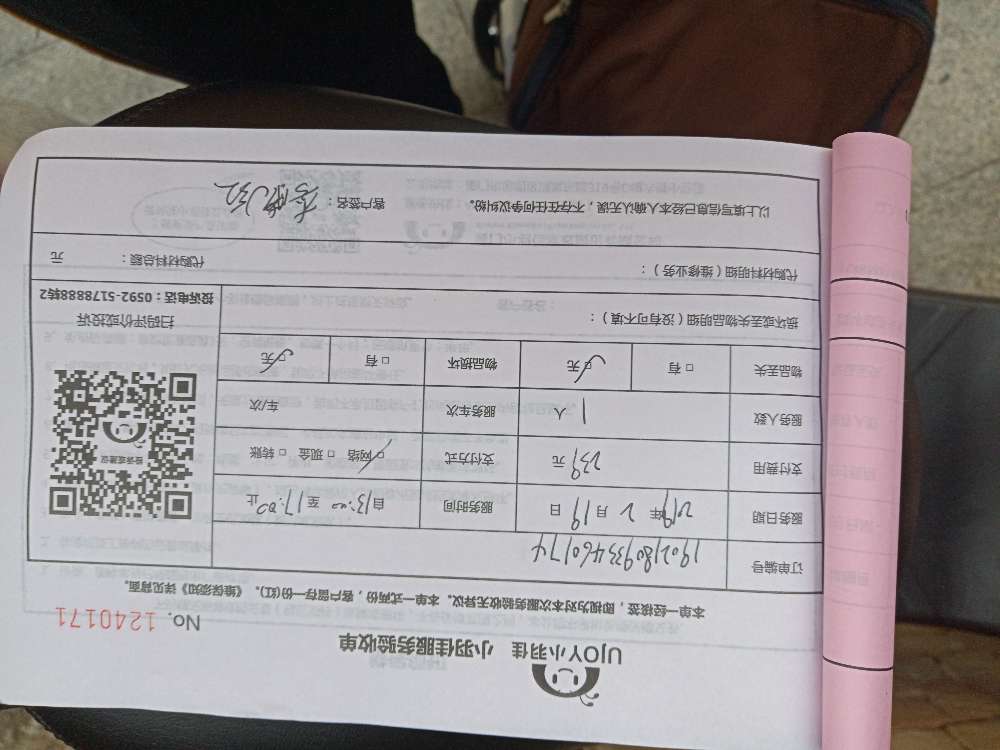 UJOY小羽佳 小羽佳服务验收单
No. 1240171
本单一经接签，即视为对本次服务验收无异议。本单一式两份，客户留存一份(红)。《维保须知》详见背面。
订单编号 1902180933460174
服务日期 2019年 2月19日 服务时间 自13:00至17:00止
支付费用 239元 支付方式 ☑网络 □现金 □转账
服务人数 1人 服务车次 车/次
物品丢失 □有 ☑无 物品损坏 □有 ☑无
损坏或丢失物品明细（没有可不填）：
扫码评价或投诉
投诉电话：0592-5178888转2
代购材料明细（维修业务）： 代购材料总额： 元
以上填写信息已经本人确认无误，不存在任何争议纠纷。 客户签名：